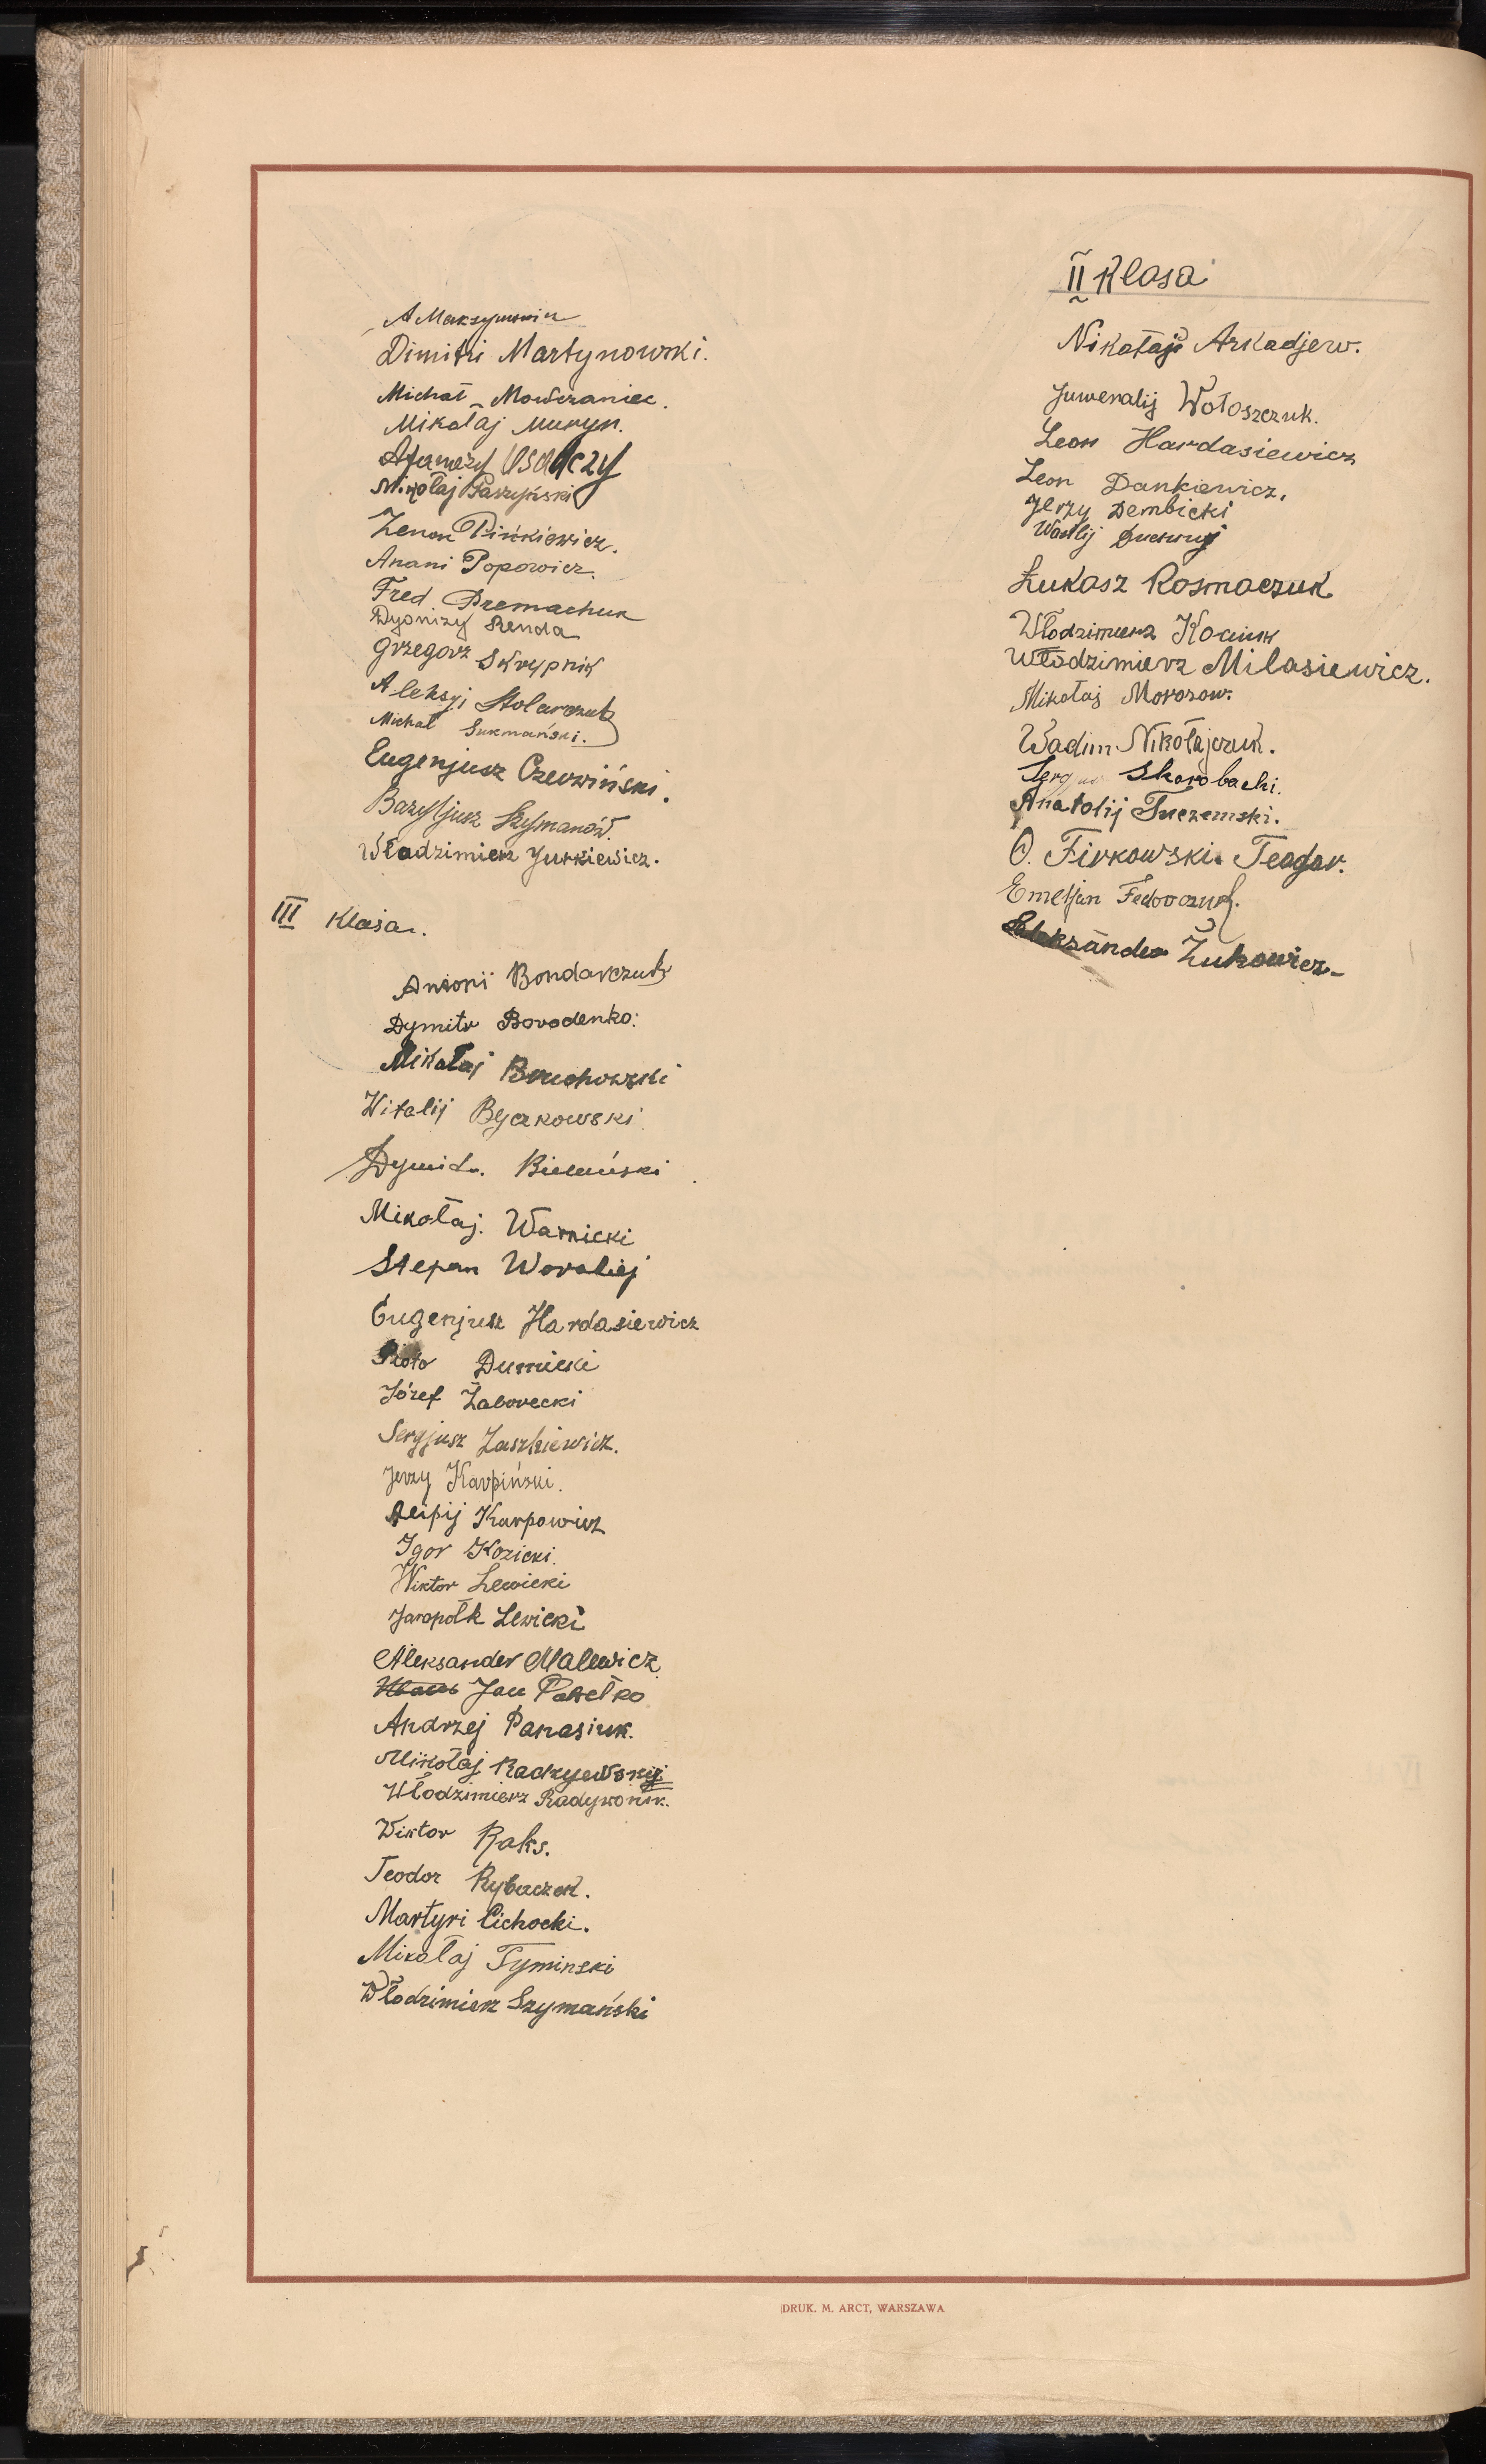 A Maksymowin
Dimitri Martynowski.
Michał Mowczaniec.
Mikołaj Muryn.
Osadczy
Mikołaj Paszyński
Zenon Pińkiewicz.
Anani Popowicz.
Fred Premachuk
Dyonizy Renda
Grzegorz Skrypnik
Aleksyj Stolarczuk
Michał Sukmański.
Eugenjusz Czerwiński.
Bazyljusz Szymanów.
Władzimierz Jurkiewicz.
III Klasa.
Antoni Bondarczuk
Dymitr Borodenko.
Mikołaj Bruchowski
Witalij Byczkowski
Dymitr. Bielański
Mikołaj. Warnicki
Stepan Worobiej
Eugenjusz Hardasiewicz
Piotr Dumicki
Józef Zaborecki
Sergjusz Zaszkiewicz.
Jerzy Karpiński.
Karpowicz
Igor Kozicki.
Wiktor Lewicki
Jaropołk Lewicki
Aleksander Malewicz
Jan Pawełko
Andrzej Panasiuk.
Mikołaj
Włodzimierz Radywoniuk.
Wiktor Raks.
Teodor Rybaczek.
Martyri Cichocki.
Mikołaj Tyminski
Włodzimierz Szymański
II Klasa
Nikołaj Arkadjew.
Juwenalij Wołoszczuk.
Leon Hardasiewicz
Leon Dankiewicz.
Jerzy Dembicki
Wasilij
Łukasz Kosmaczuk
Włodzimierz Kociuk
Włodzimierz Milasiewicz.
Mikołaj Morozow.
Wadim Nikołajczuk.
Skorobacki.
Anatolij Tuczemski.
O. Firkowski Teodor.
Emeljan Fedorczuk.
Aleksander Żukowicz
DRUK. M. ARCT, WARSZAWA